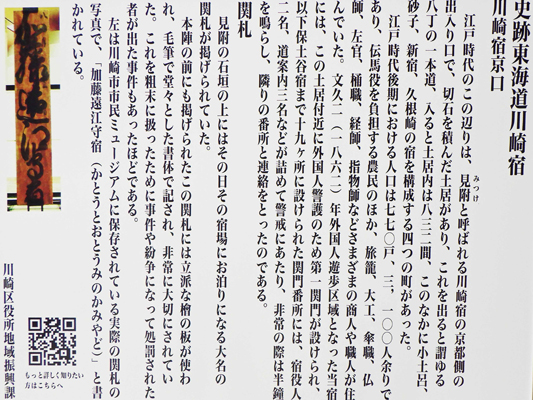 史跡東海道川崎宿
川崎宿京口
江戸時代のこの辺りは、見附と呼ばれる川崎宿の京都側の
みつけ
出入り口で、切石を積んだ土居があり、これを出ると謂ゆる
八丁の一本道、入ると土居内は八三二間、このなかに小土呂、
砂子、新宿、久根崎の宿を構成する四つの町があった。
江戸時代後期における人口は七七〇戸、三、一〇〇人余りで
あり、伝馬役を負担する農民のほか、旅籠、大工、傘職、仏
師、左官、桶職、経師、指物師などさまざまの商人や職人が住
んでいた。文久二(一八六二)年外国人遊歩区域となった当宿
には、この土居付近に外国人警護のため第一関門が設けられ、
以下保土谷宿まで十九ヶ所に設けられた関門番所には、宿役人
二名、道案内三名などが詰めて警戒にあたり、非常の際は半鐘
を鳴らし、隣りの番所と連絡をとったのである。
関札
見附の石垣の上にはその日その宿場にお泊りになる大名の
関札が掲げられていた。
本陣の前にも掲げられたこの関札には立派な檜の板が使わ
れ、毛筆で堂々とした書体で記され、非常に大切にされてい
た。これを粗末に扱ったために事件や紛争になって処罰された
者が出た事件もあったほどである。
左は川崎市市民ミュージアムに保存されている実際の関札の
写真で、「加藤遠江守宿(かとうとおとうみのかみやど)」と書
かれている。
もっと詳しく知りたい
方はこちらへ
川崎区役所地域振興課